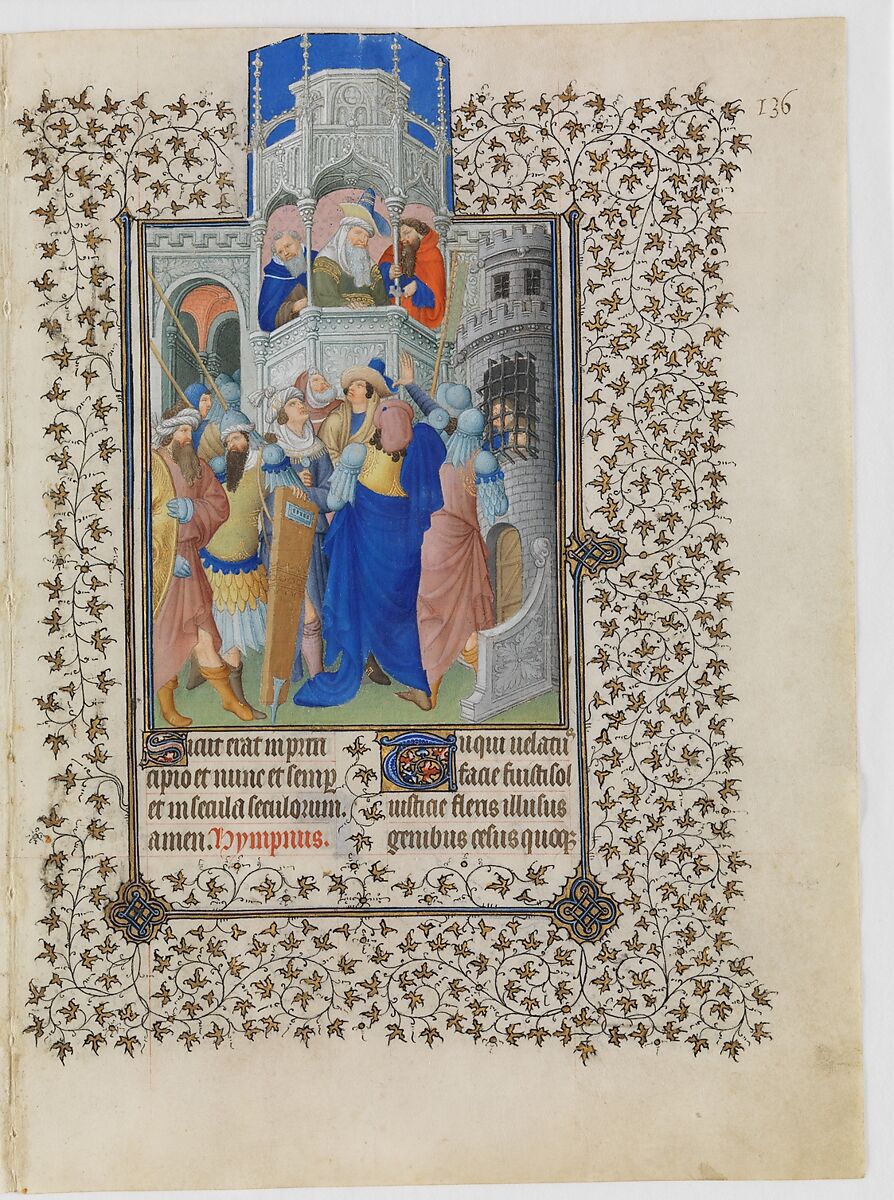 136
Sicut erat in prin
cipio et nunc et semp
et in secula seculorum.
amen. Hympnus.
Tu qui uelatu
facie fuisti sol
iusticie flexis illusus
genibus cesus quoq